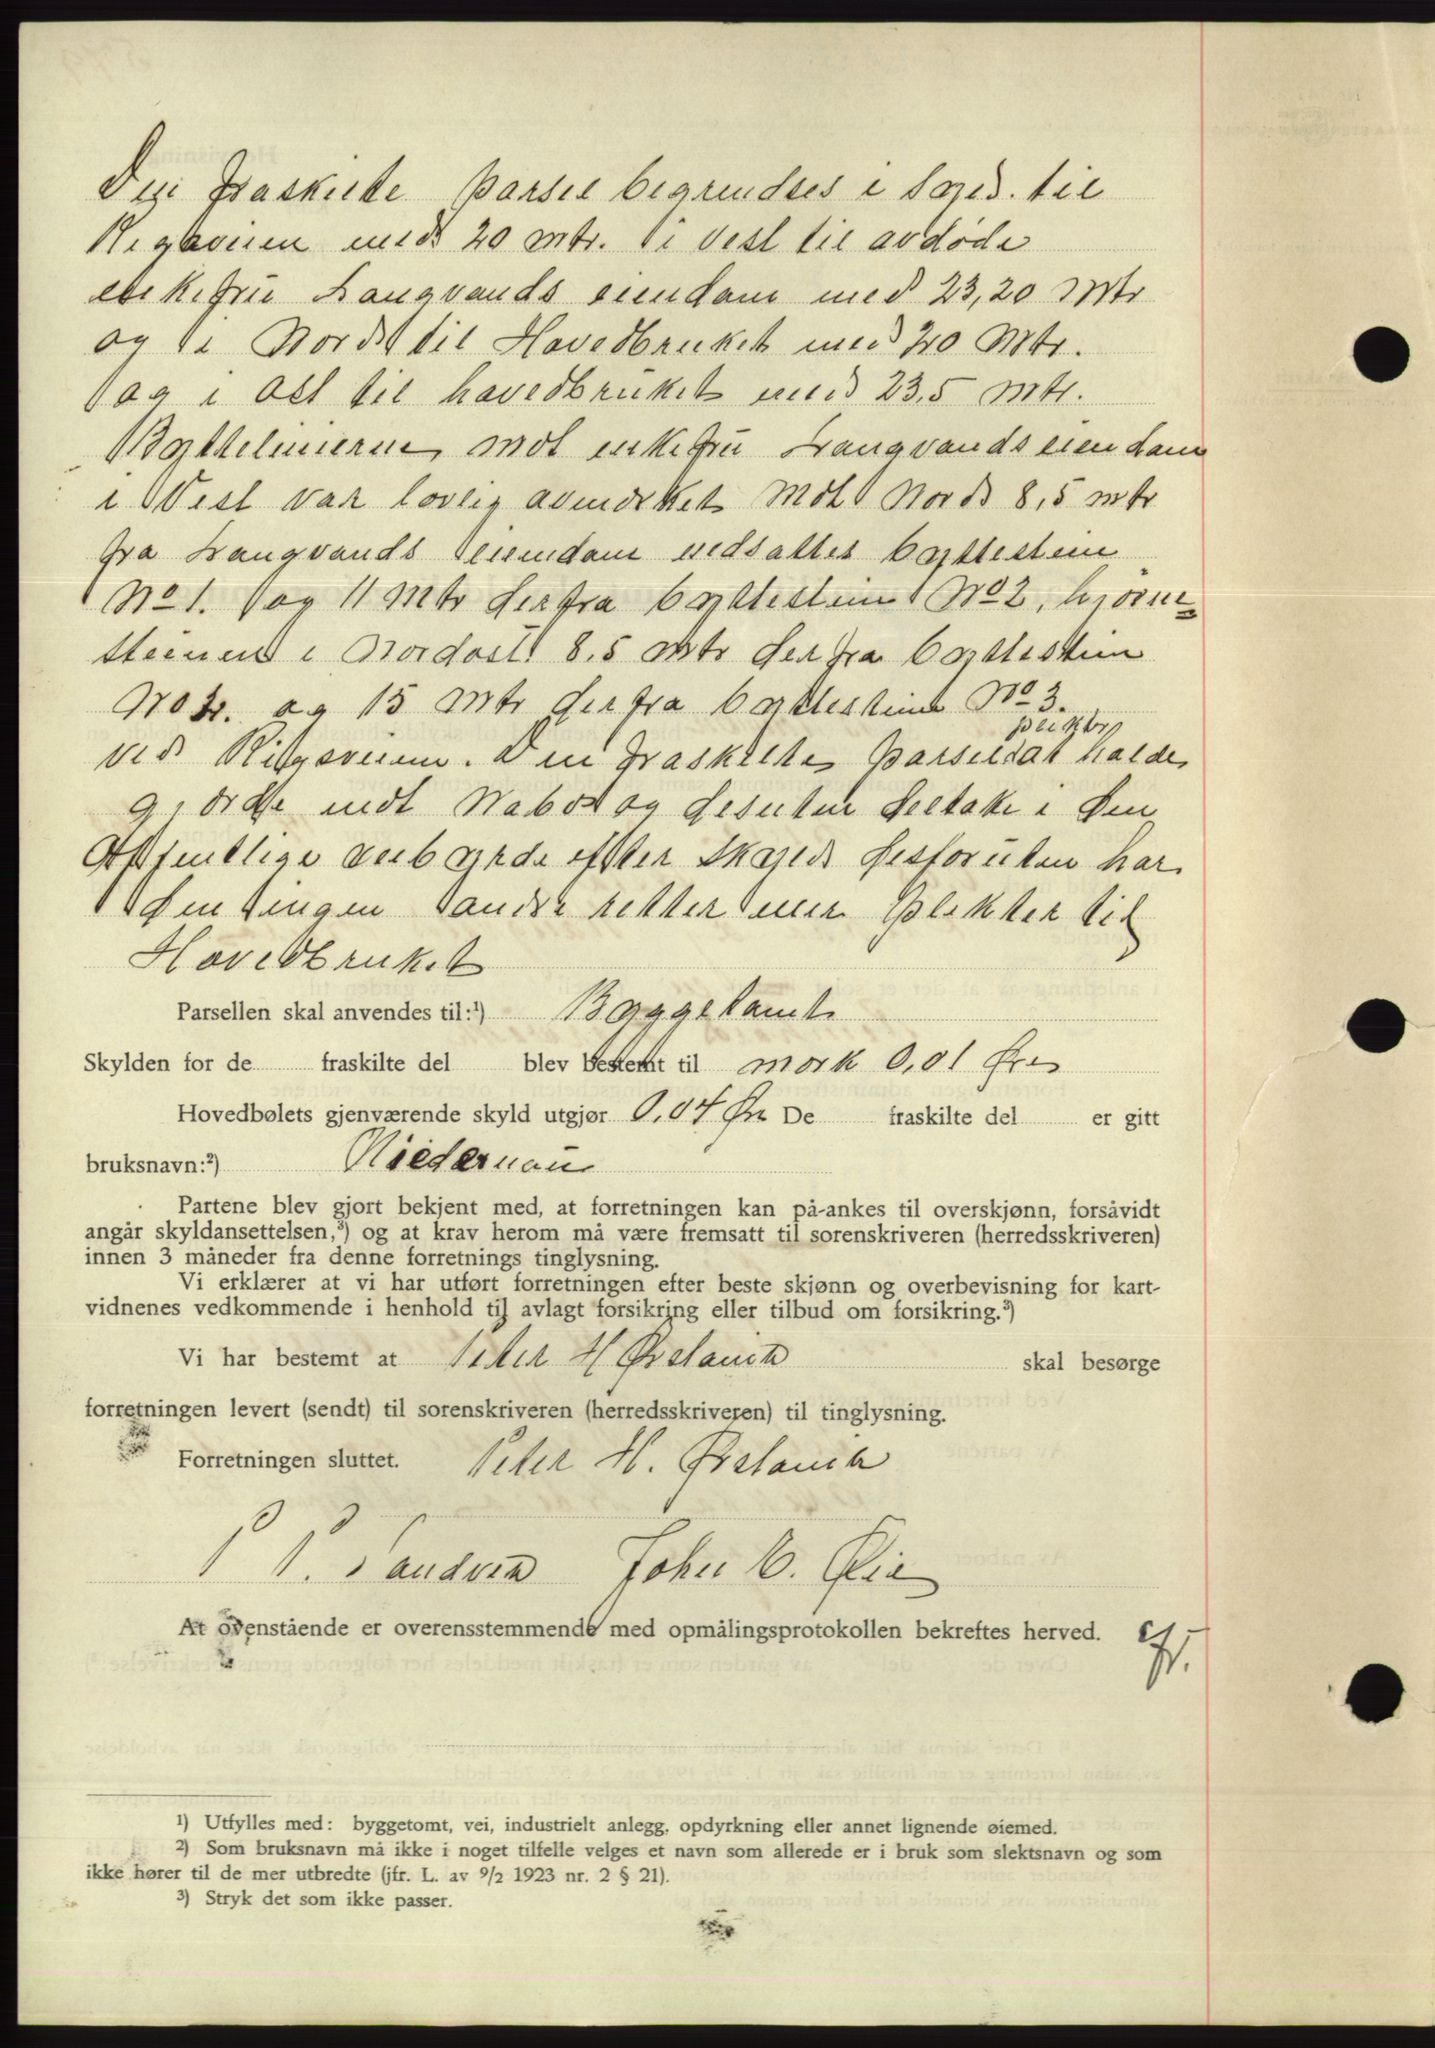 Den fraskilte parsel begrendses i Syd. til
Rigsveien med 20 mtr. i vest til avdøde
enkefru Langvands eiendom med 23,20 Mtr
og i Nord til Hovedbruket med 20 Mtr.
og i Ost til havedbruket med 23,5 mtr.
Byttelinierne mot enkefru Langvands eiendom
i Vest var lovlig avmerket Mot Nord 8,5 mtr
fra Langvands eiendom nedsattes byttestein
No 1. og 11 Mtr derfra byttestein No 2, hjørne=
steinen i Nordost 8,5 mtr derfra byttestein
No og 15 Mtr derfra byttestein No 3.
ved Rigsveien. Den fraskilte parsel plikter at holde
gjærde mot Nabo og desuten deltake i den
Offentlige veibyrde efter Skyld desforuten har
den ingen andre retter eller plikter til
Hovedbruket
Parsellen skal anvendes til:¹) Byggetomt
Skylden for de fraskilte del blev bestemt til mark 0,01 Øre
Hovedbølets gjenværende skyld utgjør 0,04 Øre De fraskilte del er gitt
bruksnavn:²) Niedernau
Partene blev gjort bekjent med, at forretningen kan på-ankes til overskjønn, forsåvidt
angår skyldansettelsen,³) og at krav herom må være fremsatt til sorenskriveren (herredsskriveren)
innen 3 måneder fra denne forretnings tinglysning.
Vi erklærer at vi har utført forretningen efter beste skjønn og overbevisning for kart-
vidnenes vedkommende i henhold til avlagt forsikring eller tilbud om forsikring.³)
Vi har bestemt at Peter H Ørstavik skal besørge
forretningen levert (sendt) til sorenskriveren (herredsskriveren) til tinglysning.
Forretningen sluttet. Peter H. Ørstavik
P P. Sandvik John E. Øie
At ovenstående er overensstemmende med opmålingsprotokollen bekreftes herved.
¹) Utfylles med: byggetomt, vei, industrielt anlegg, opdyrkning eller annet lignende øiemed.
²) Som bruksnavn må ikke i noget tilfelle velges et navn som allerede er i bruk som slektsnavn og som
ikke hører til de mer utbredte (jfr. L. av 9/2 1923 nr. 2 § 21).
³) Stryk det som ikke passer.